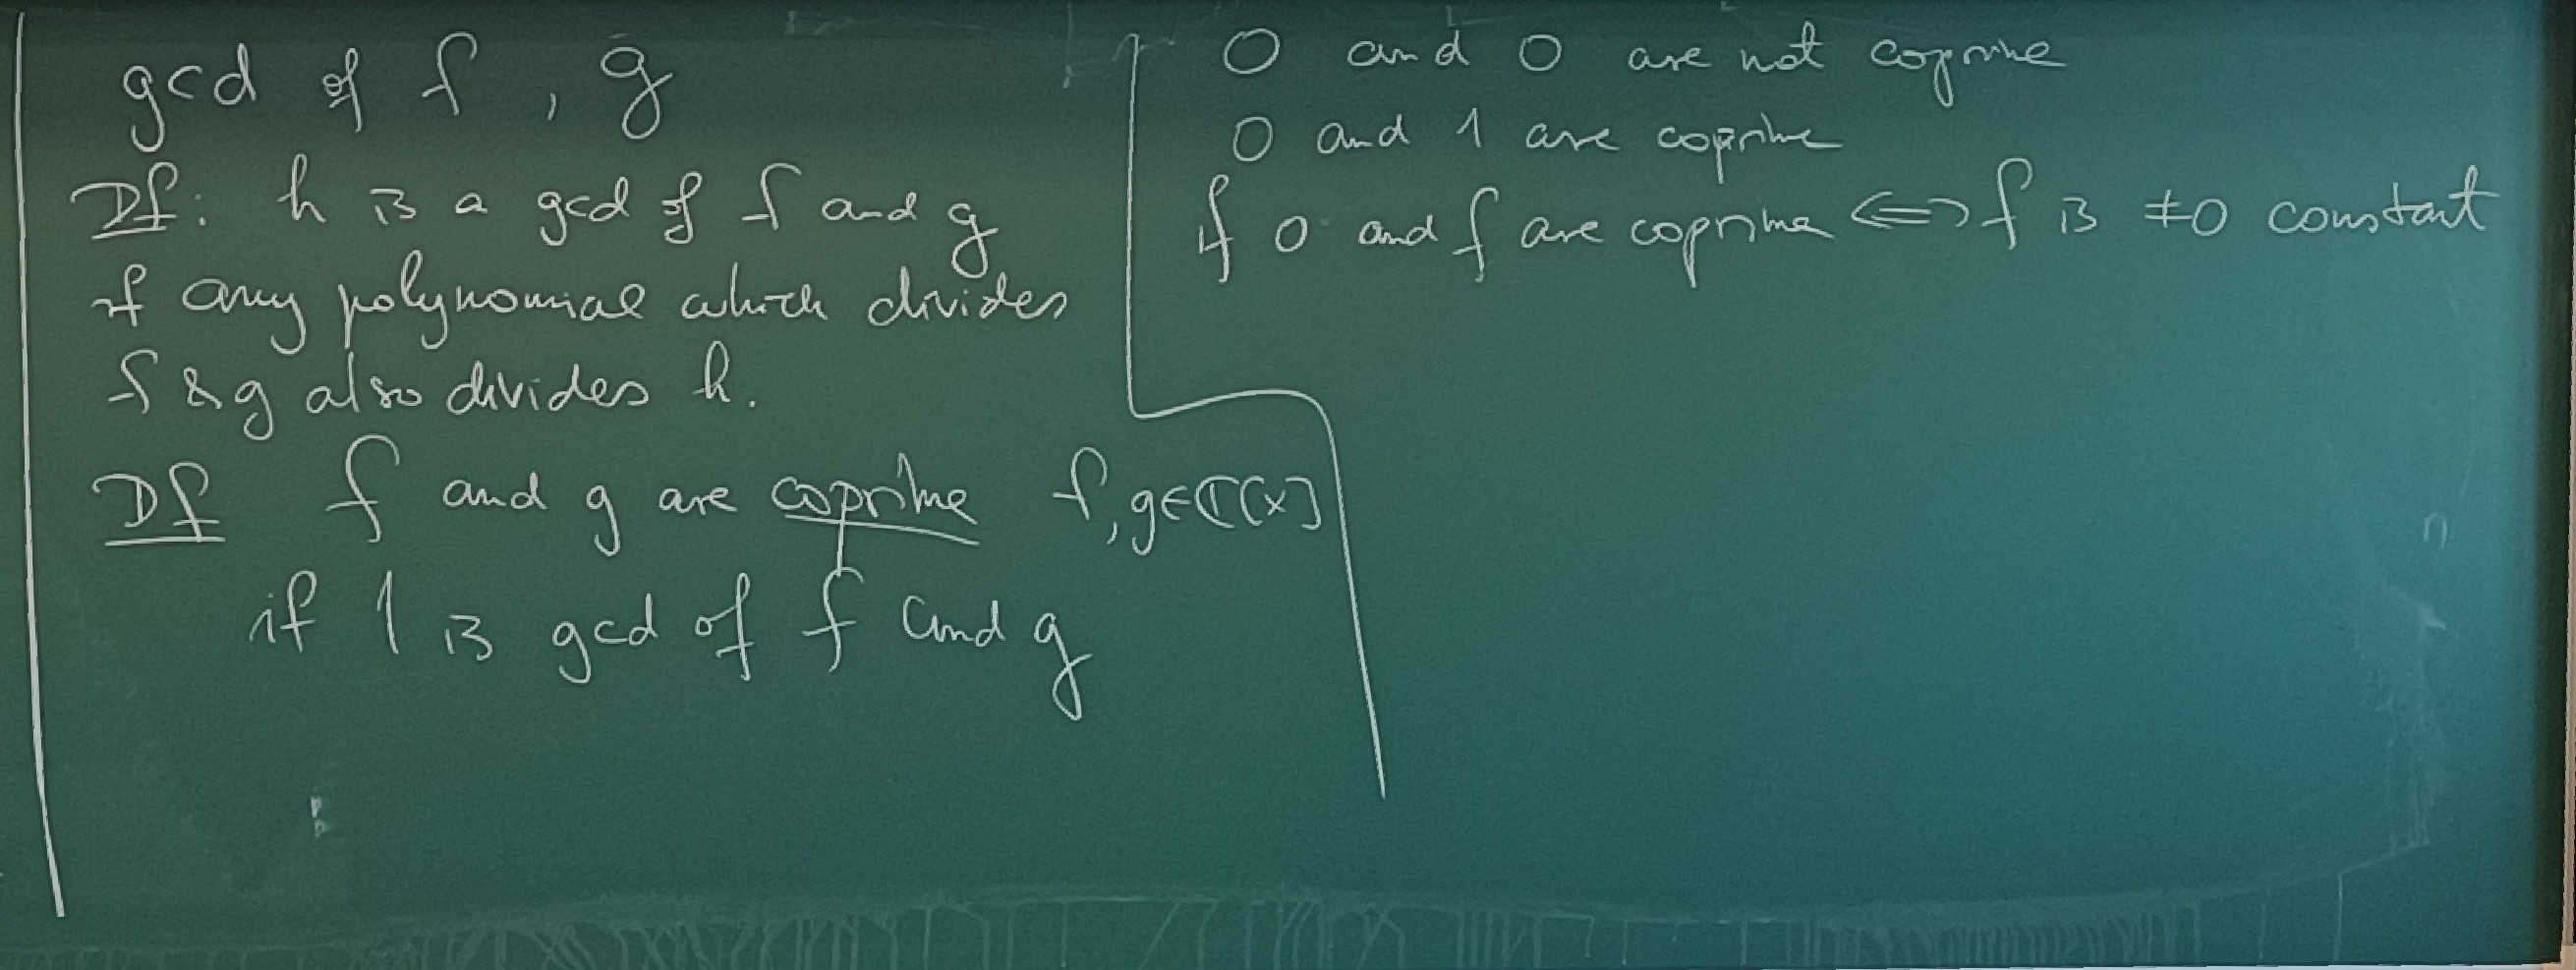 gcd of f, g
Df: h is a gcd of f and g
if any polynomial which divides
f & g also divides h.
Df f and g are coprime f,g∈ℂ[x]
if 1 is gcd of f and g
0 and 0 are not coprime
0 and 1 are coprime
if 0 and f are coprime ⟺ f is ≠0 constant